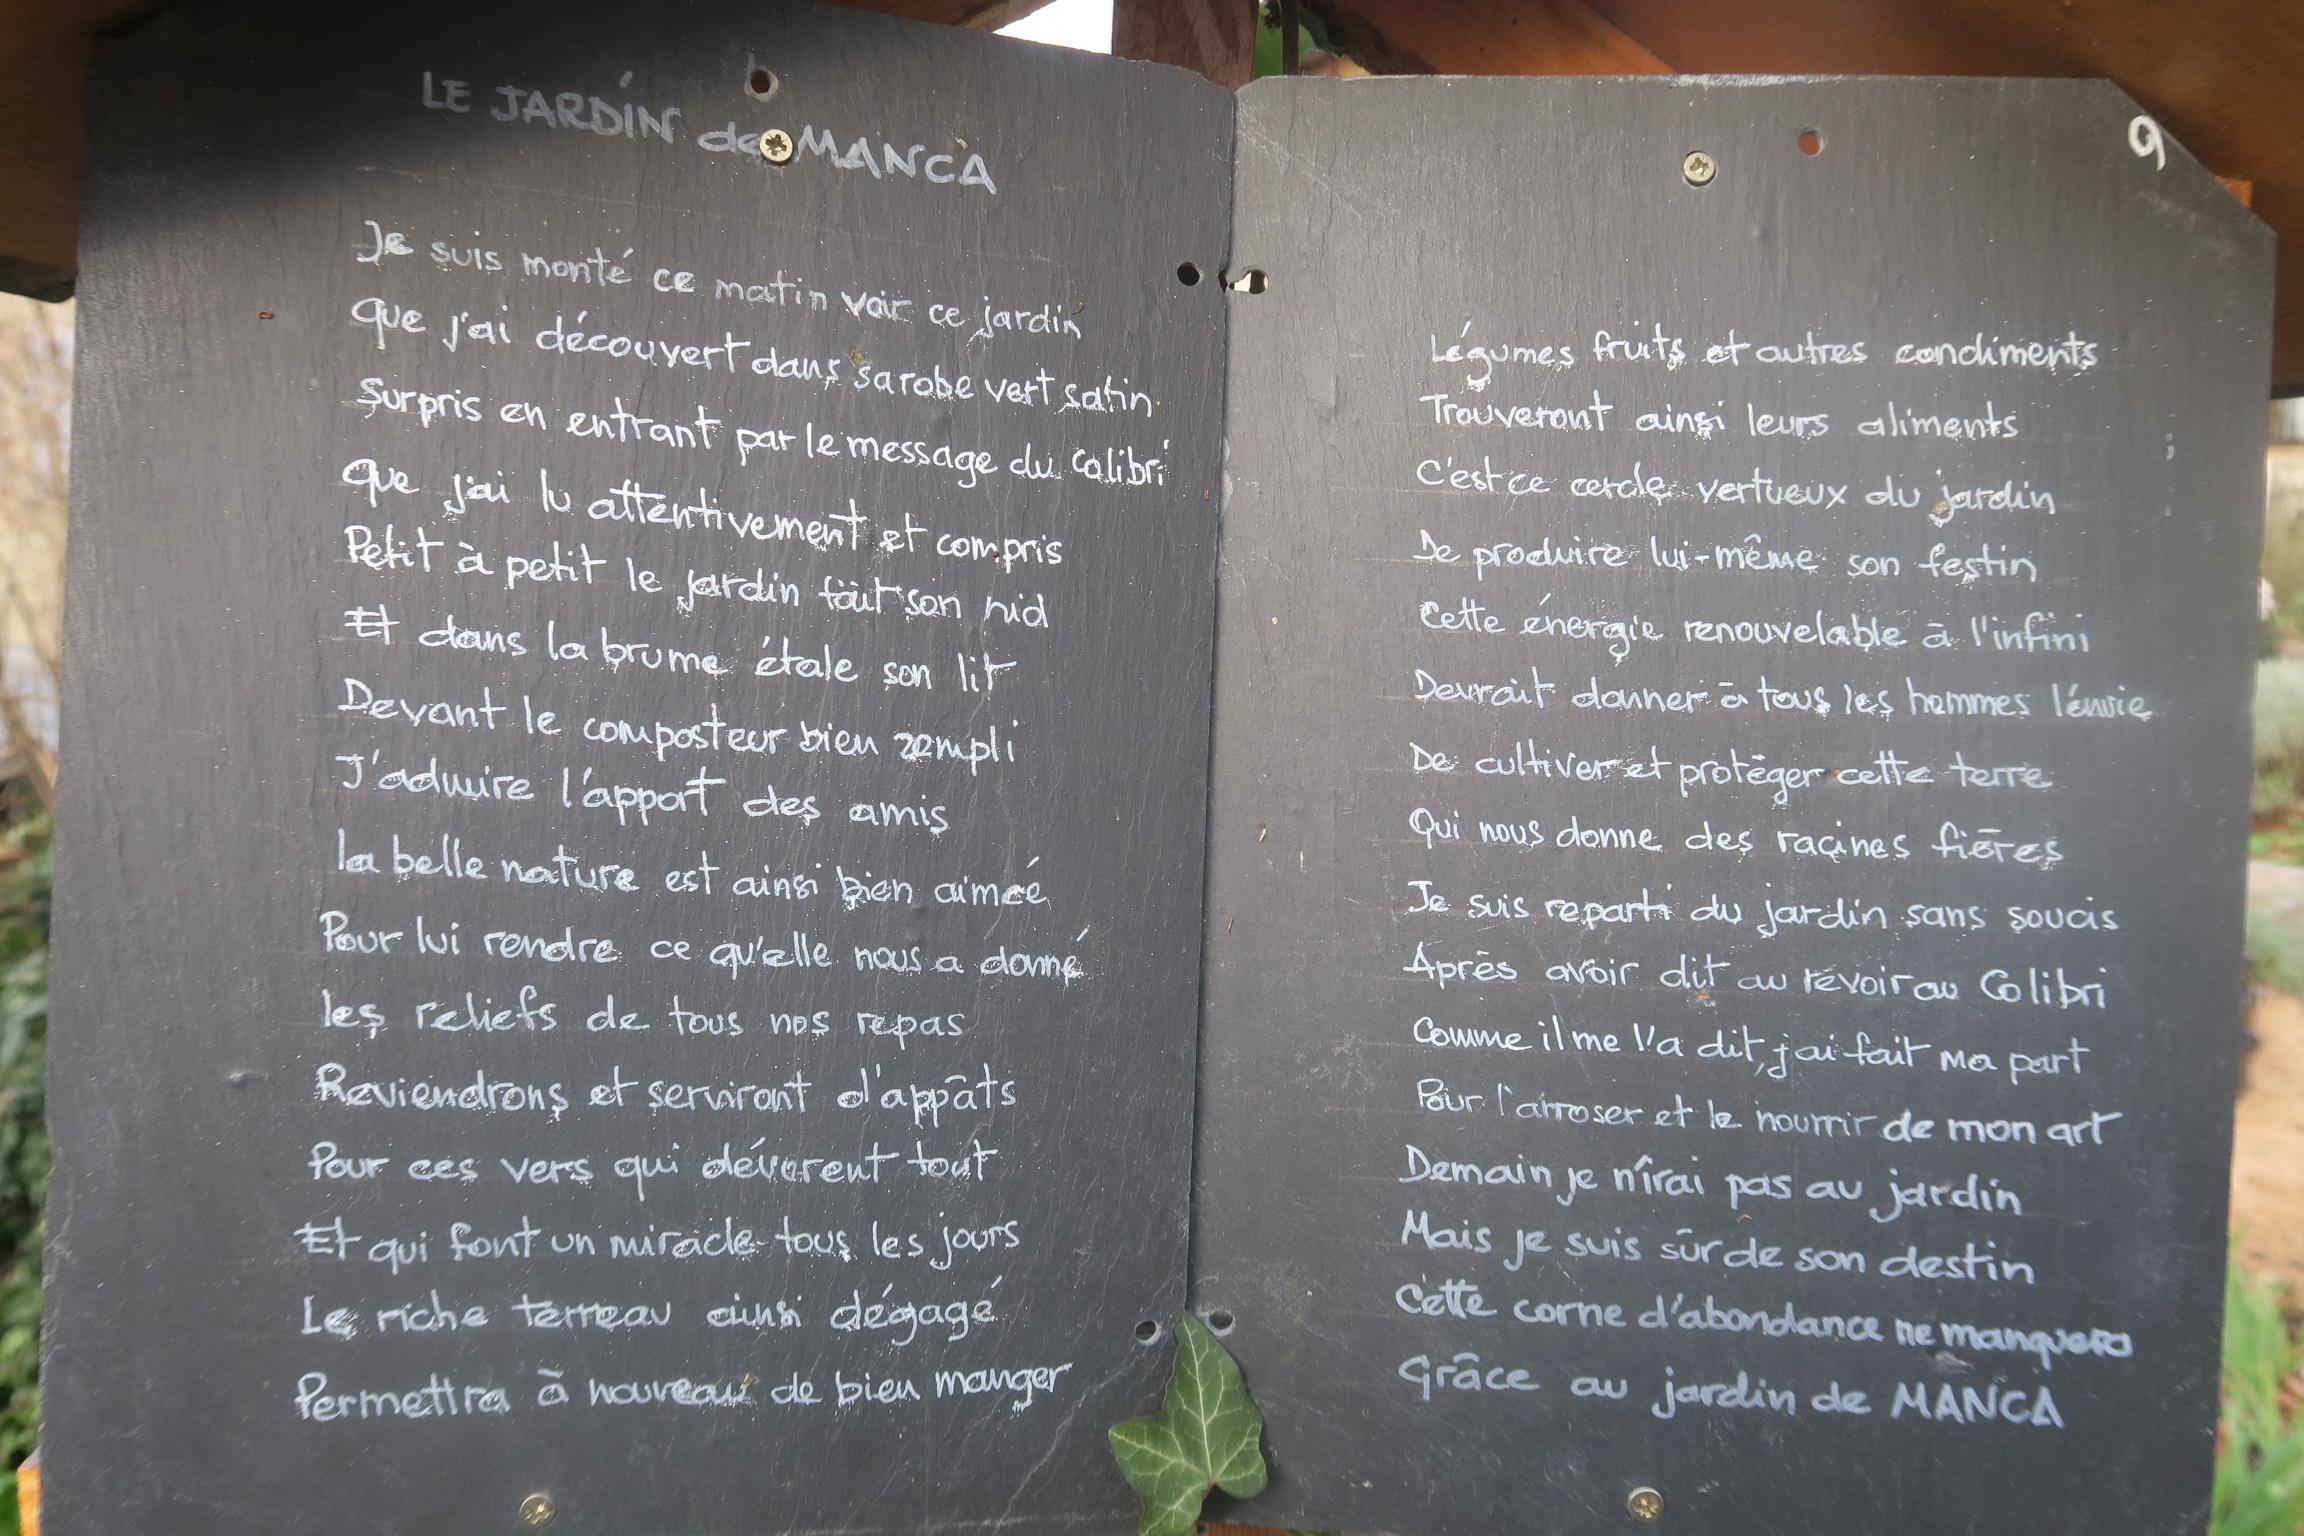 LE JARDIN de MANCA
Je suis monté ce matin voir ce jardin
Que j'ai découvert dans sa robe vert satin
Surpris en entrant par le message du Colibri
Que j'ai lu attentivement et compris
Petit à petit le jardin fait son nid
Et dans la brume étale son lit
Devant le composteur bien rempli
J'admire l'apport des amis
la belle nature est ainsi bien aimée
Pour lui rendre ce qu'elle nous a donné
les reliefs de tous nos repas
Reviendrons et serviront d'appâts
Pour ces vers qui dévorent tout
Et qui font un miracle tous les jours
Le riche terreau ainsi dégagé
Permettra à nouveau de bien manger
9
Légumes fruits et autres condiments
Trouveront ainsi leurs aliments
C'est ce cercle vertueux du jardin
De produire lui-même son festin
Cette énergie renouvelable à l'infini
Devrait donner à tous les hommes l'envie
De cultiver et protéger cette terre
Qui nous donne des racines fières
Je suis reparti du jardin sans soucis
Après avoir dit au revoir au Colibri
Comme il me l'a dit, j'ai fait ma part
Pour l'arroser et le nourrir de mon art
Demain je n'îrai pas au jardin
Mais je suis sûr de son destin
Cette corne d'abondance ne manquera
Grâce au jardin de MANCA